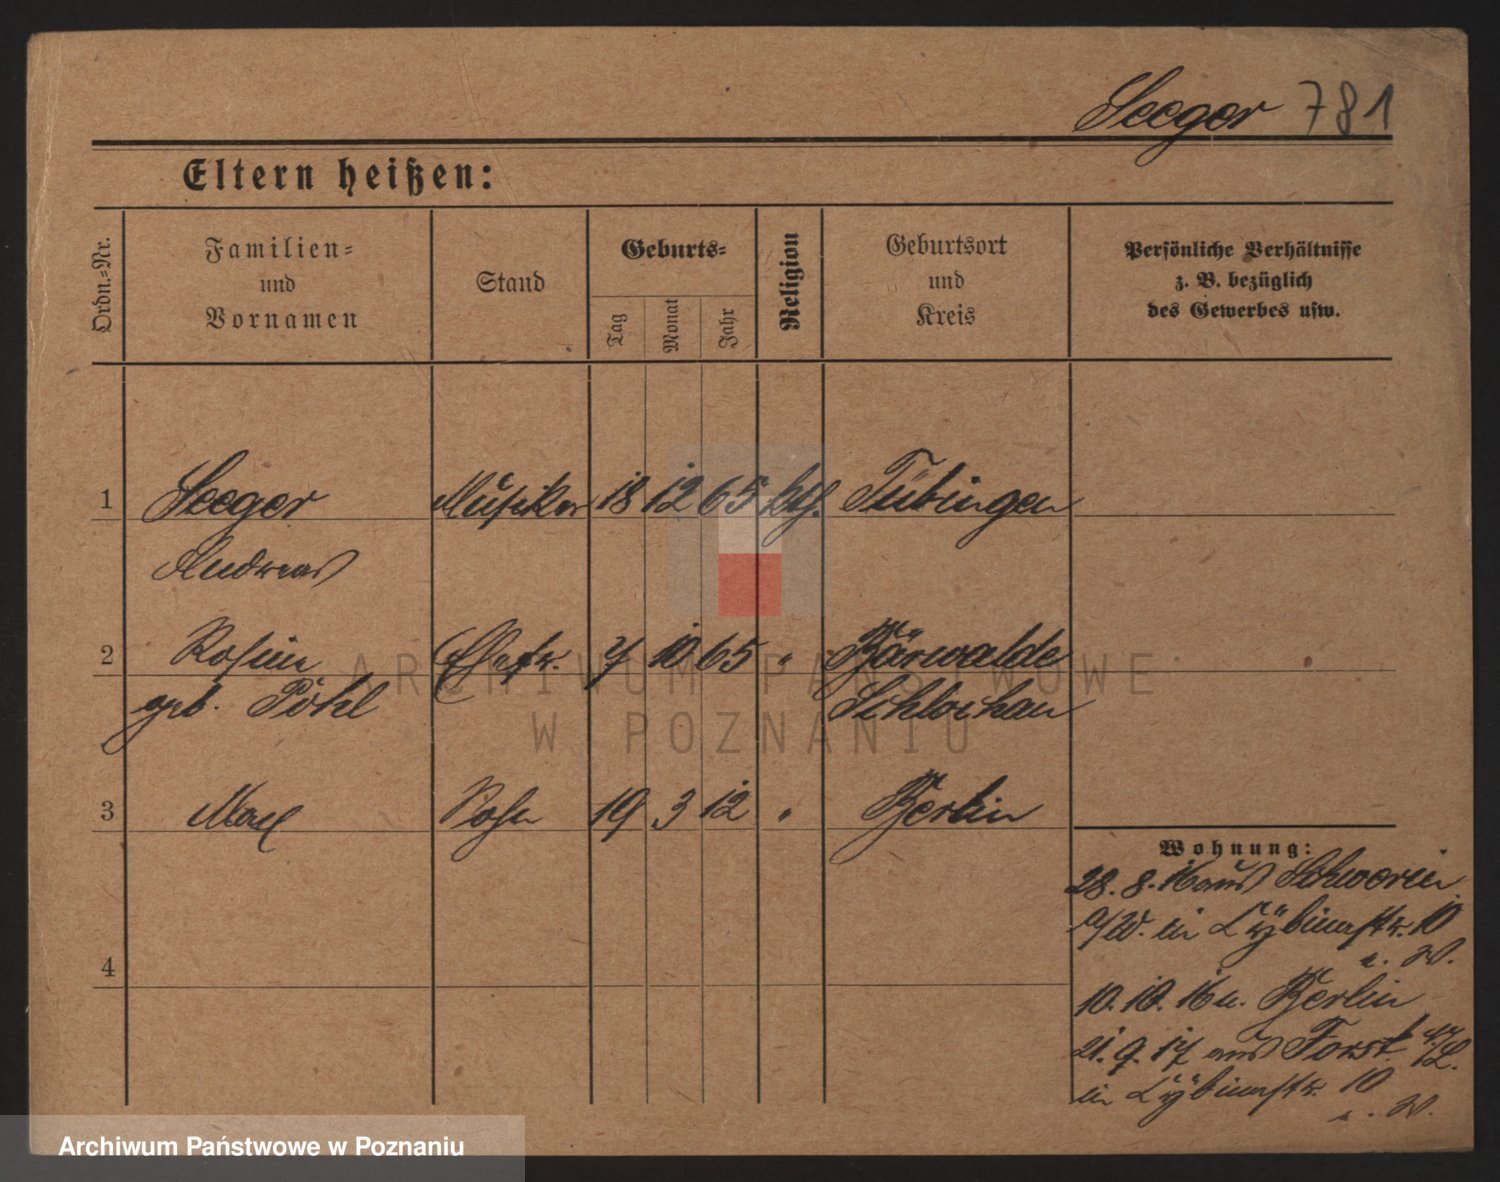 Seeger 781
Eltern heißen:
Ordn.-Nr.
Familien-
und
Vornamen
Stand
Geburts-
Tag
Monat
Jahr
Religion
Geburtsort
und
Kreis
Persönliche Verhältnisse
z. B. bezüglich
des Gewerbes usw.
1 Seeger Musiker 18 12 65 kth. Tübingen
Andreas
2 Rosine Ehefr. 7 10 65 " Bärwalde
geb. Pöhl Schlochau
3 Max Sohn 19 3 12 " Berlin
4
Wohnung:
28. 8. 16 aus Schwerin
a/W. in 10
n. W.
10. 10. 16 n. Berlin
21. 9. 17 aus Forst i/L.
in 10
n. W.
ARCHIWUM PAŃSTWOWE
W POZNANIU
Archiwum Państwowe w Poznaniu